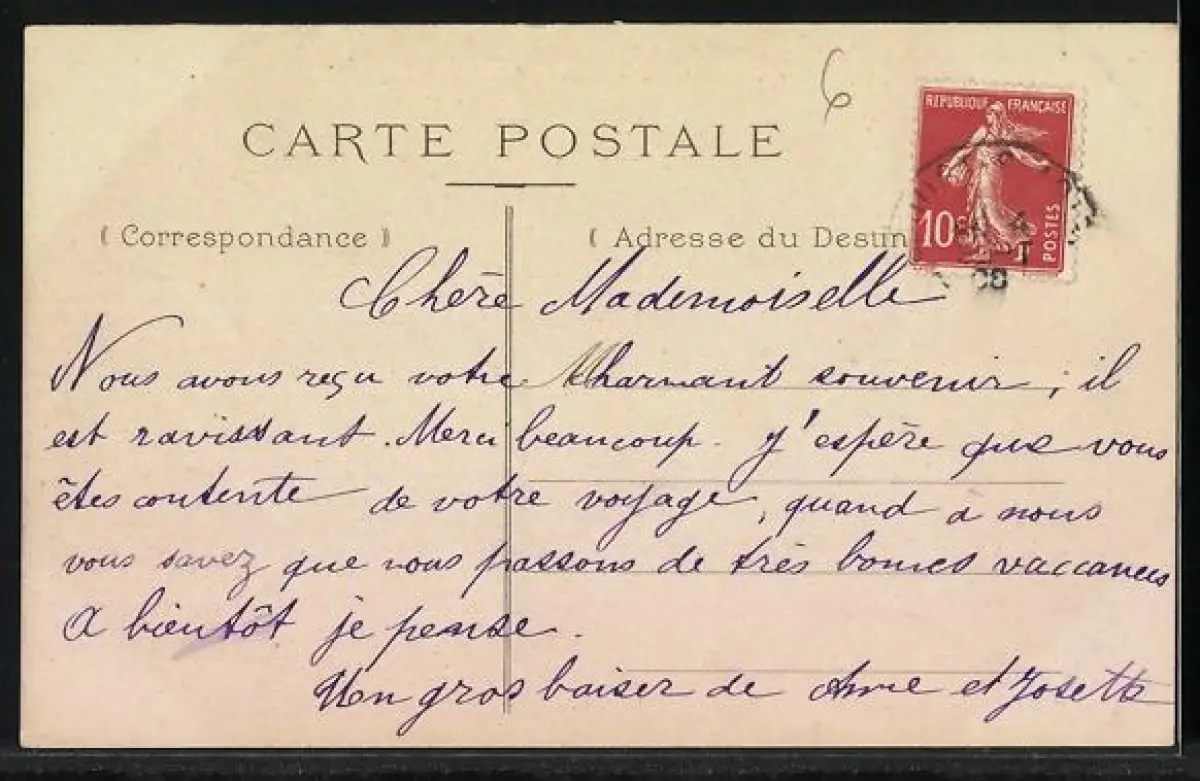 6
RÉPUBLIQUE FRANÇAISE
CARTE POSTALE
10c
POSTES
( Correspondance )
( Adresse du Destin
4
08
Chère Mademoiselle
Nous avons reçu votre charmant souvenir, il
est ravissant. Merci beaucoup. J'espère que vous
êtes contente de votre voyage, quand à nous
vous savez que nous passons de très bonnes vaccances
A bientôt je pense.
Un gros baiser de et Josette